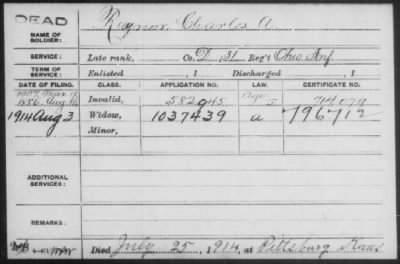 DEAD
NAME OF SOLDIER: Raynor, Charles A.
SERVICE: Late rank, Co. D, 31 Reg't Ohio Inf
TERM OF SERVICE: Enlisted , 1 Discharged , 1
DATE OF FILING. CLASS. APPLICATION NO. LAW. CERTIFICATE NO.
1886, Aug. Invalid, 582945
1914 Aug 3 Widow, 1037439 a 796712
Minor,
ADDITIONAL SERVICES:
REMARKS:
Died July 25, 1914, at Pittsburg Kans